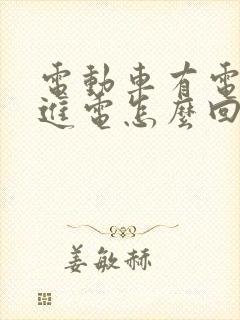 電動車有電
進電怎麼回
姜敏赫